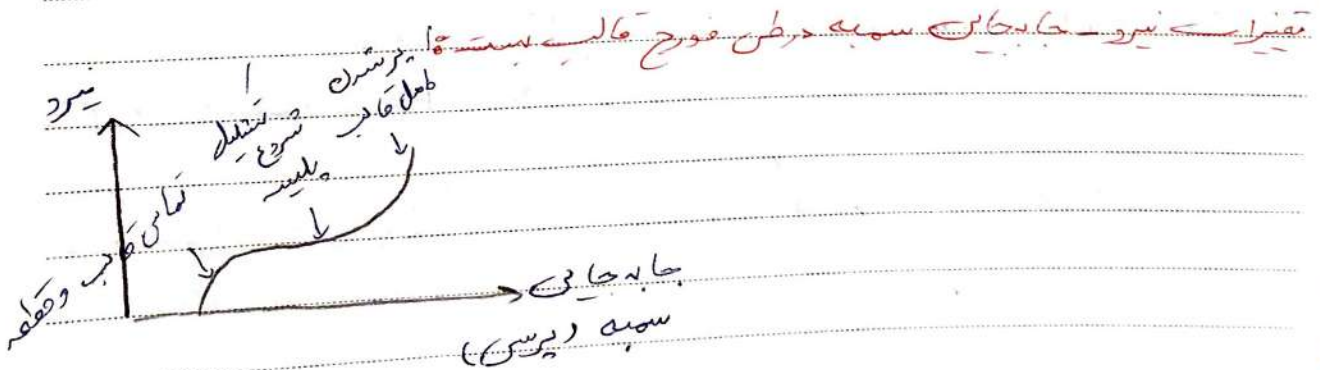 تغییرات نیرو - جابه‌جایی سمبه در طی فورج قالب بسته:
نیرو
تماس قالب و قطعه
شروع تشکیل
پلیسه
پر شدن
کامل قالب
جابه‌جایی
سمبه (پرس)